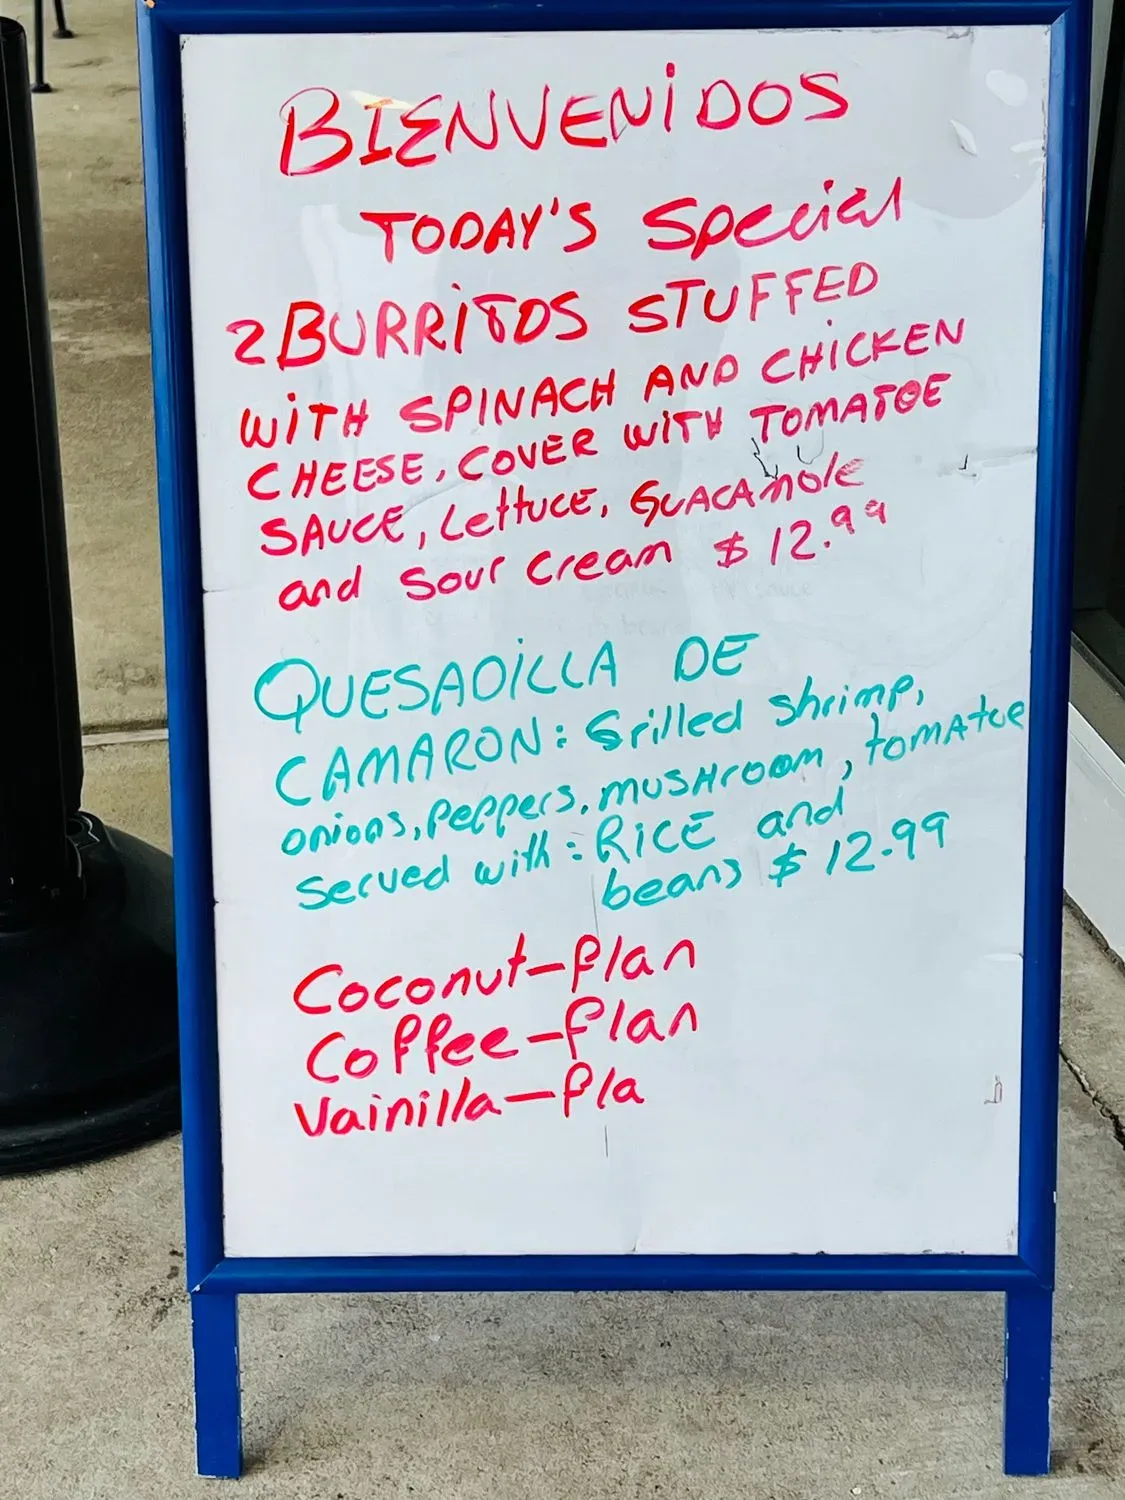 BIENVENIDOS
TODAY'S Special
2 BURRITOS STUFFED
WITH SPINACH AND CHICKEN
CHEESE, COVER WITH TOMATOE
SAUCE, Lettuce, GUACAMOLE
and Sour Cream $12.99
QUESADILLA DE
CAMARON: Grilled shrimp,
onions, Peppers, mushroom, tomatoe
Served with: RICE and
beans $12.99
Coconut-flan
Coffee-flan
Vainilla-fla